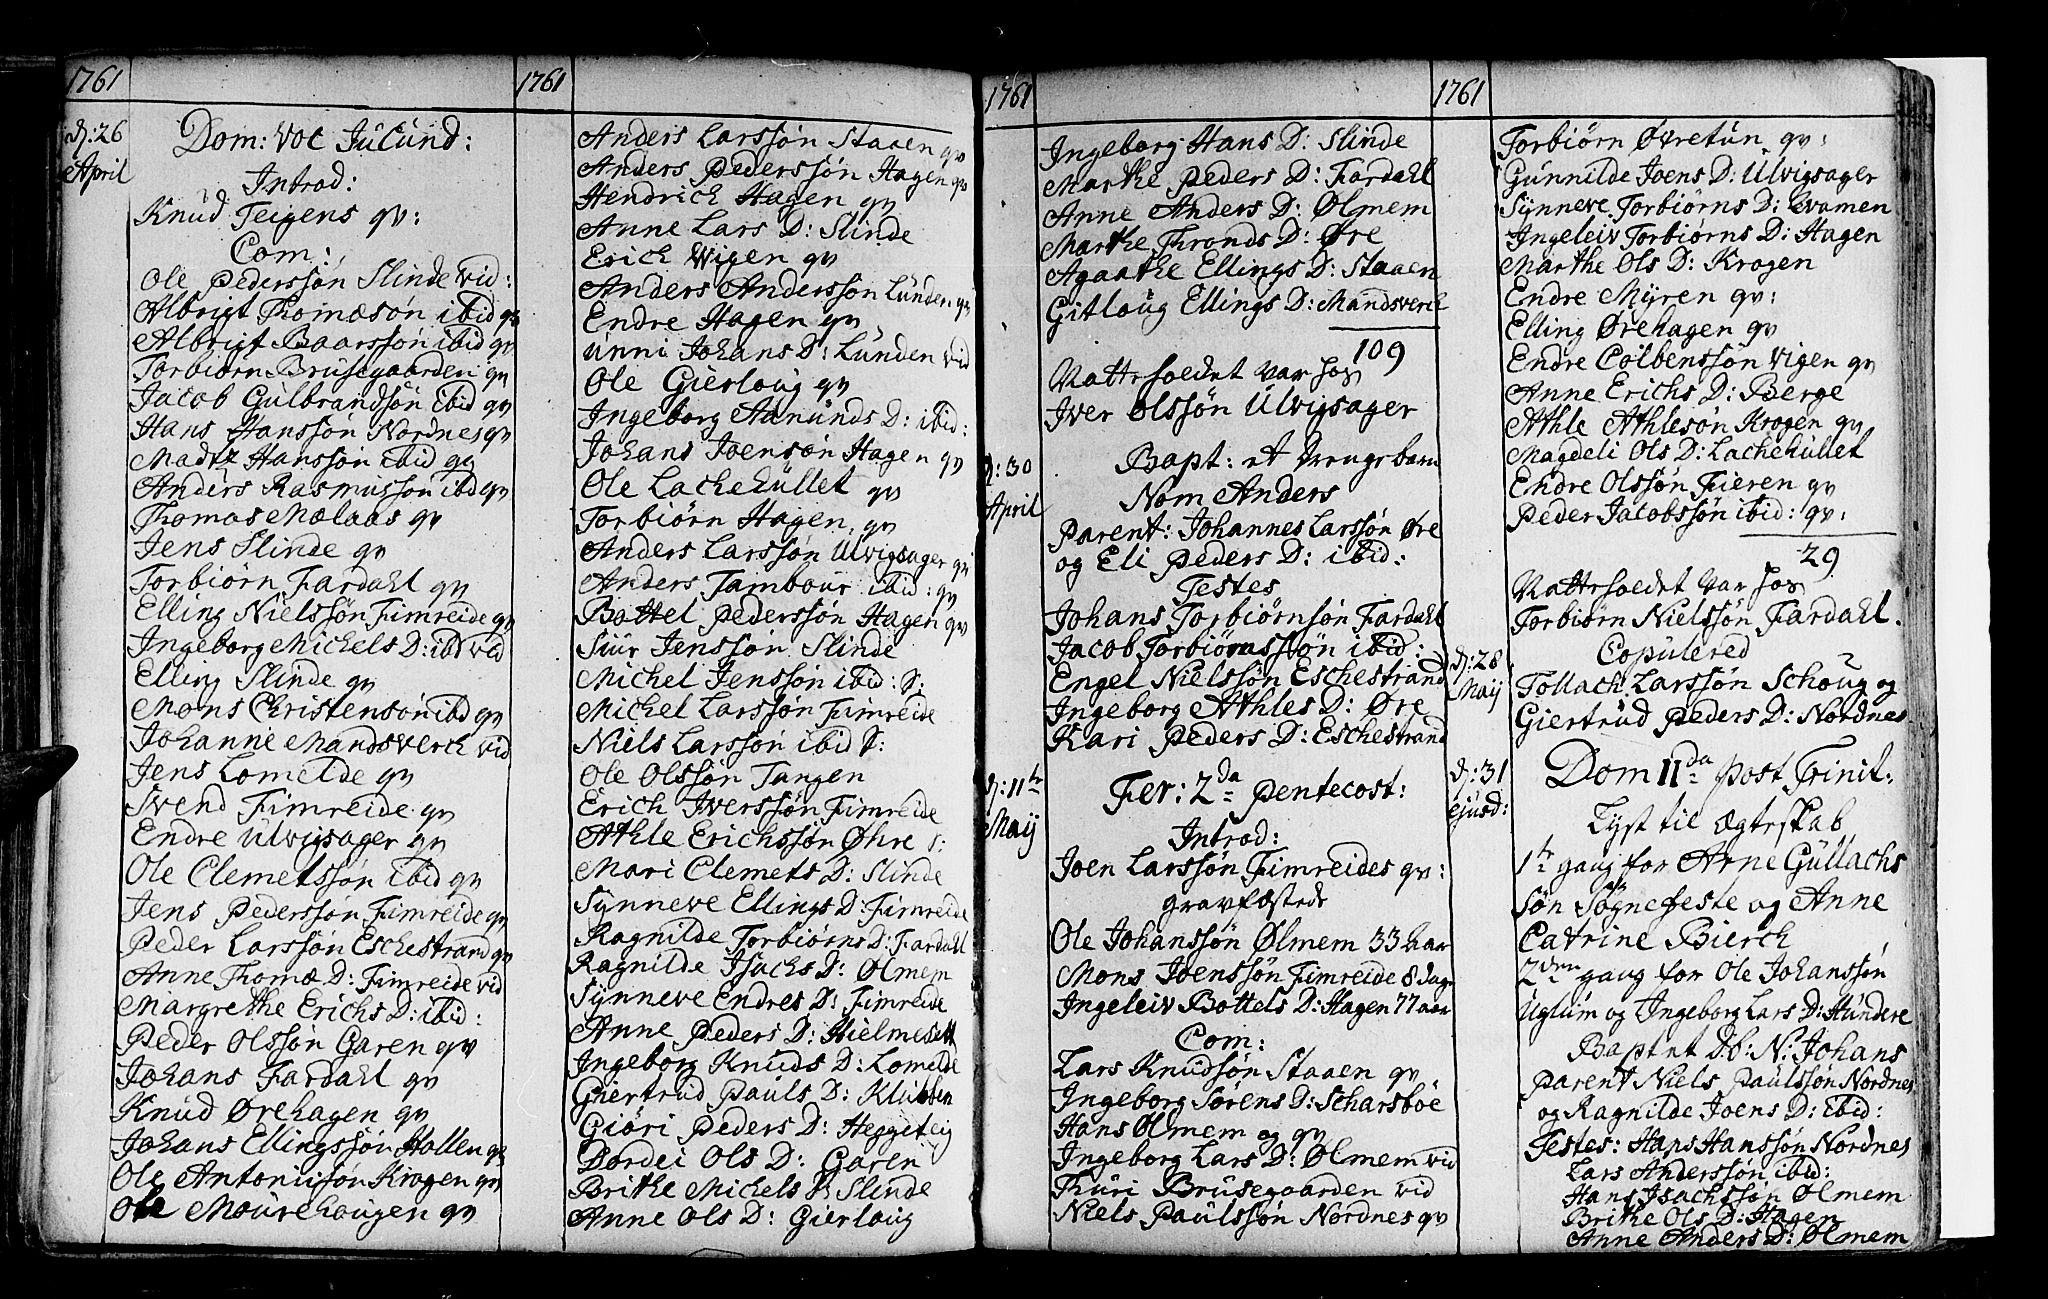 1761
d: 26
April
Dom: Voc Jucund:
Introd:
Knud Teigens qv:
Com:
Ole Pederssøn Slinde vid:
Albrigt Thomæsøn ibid qv
Albrigt Baarssøn ibid qv
Torbiørn Brusegaarden qv
Jacob Gulbrandsøn ibid qv
Hans Hanssøn Nordnes qv
Madtz Hanssøn ibid qv
Anders Rasmussøn ibd qv
Thomas Mælaas qv
Jens Slinde qv
Torbiørn Fardahl qv
Elling Nielssøn Fimreide qv
Ingeborg Michels D: ibd vid
Elling Slinde qv
Mons Christensøn ibd qv
Johanne Mandsverch vid
Jens Lomelde qv
Svend Fimreide qv
Endre Ulvigsager qv
Ole Clemetssøn ibid qv
Jens Pederssøn Fimreide qv
Peder Larssøn Eschestrand qv
Anne Thomæ D: Fimreide vid
Margrethe Erichs D: ibid:
Peder Olssøn Garen qv
Johans Fardahl qv
Knud Ørehagen qv
Johans Ellingssøn Hollen qv
Ole Antonissøn Krogen qv
Ole Mourehougen qv
1761
Anders Larssøn Staaen qv
Anders Pederssøn Hagen qv
Hendrich Hagen qv
Anne Lars D: Slinde
Erich Vigen qv
Anders Anderssøn Lunden qv
Endre Hagen qv
Unni Johans D: Lunden vid
Ole Gierloug qv
Ingeborg Amunds D: ibid:
Johans Joensøn Hagen qv
Ole Lachehullet qv
Torbiørn Hagen qv
Anders Larssøn Ulvigsager qv
Anders Tambour ibid: qv
Bottel Pederssøn Hagen qv
Siur Jenssøn Slinde
Michel Jenssøn ibid: S:
Michel Larssøn Fimreide
Niels Larssøn ibid S:
Ole Olssøn Tangen
Erich Iverssøn Fimreide
Athle Erichssøn Øhre S:
Mari Clemets D: Slinde
Synneve Ellings D: Fimreide
Ragnilde Torbiørns D: Fardahl
Ragnilde Isachs D: Ølmem
Synneve Endres D: Fimreide
Anne Peders D: Hielmesett
Ingeborg Knuds D: Lomelde
Giertrud Pauls D: Klubben
Giøri Peders D: Heggeteig
Dordei Ols D: Garen
Brithe Michels D Slinde
Anne Ols D: Gierloug
1761
Ingeborg Hans D: Slinde
Marthe Peders D: Fardahl
Anne Anders D: Ølmem
Marthe Tronds D: Øre
Agaathe Ellings D: Staaen
Gitloug Ellings D: Mandsverch
109
Natteholdet var hos
Iver Olssøn Ulvigsager
d: 30
April
Bapt: et Drengebarn
Nom Anders
Parent: Johannes Larssøn Øre
og Eli Peders D: ibid:
Testes
Johans Torbiørnsøn Fardahl
Jacob Torbiørnssøn ibid:
Engel Nielssøn Eschestrand
Ingeborg Athles D: Øre
Kari Peders D: Eschestrand
d: 11te
Maij
Fer: 2da Pentecost:
Introd:
Joen Larssøn Fimreides qv:
gravfæstede
Ole Johanssøn Ølmem 33 Aar
Mons Joenssøn Fimreide 8 dage
Ingeleiv Bottels D: Hagen 77 aar
Com:
Lars Knudsøn Staaen qv
Ingeborg Sørens D: Scharsbøe
Hans Ølmem og qv
Ingeborg Lars D: Ølmem vid
Turi Brusegaarden vid
Niels Paulssøn Nordnes qv
1761
Torbiørn Øvretun qv:
Gunnilde Joens D: Ulvigsager
Synneve Torbiørns D: Kvamen
Ingeleiv Torbiørns D: Hagen
Marthe Ols D: Krogen
Endre Myren qv:
Elling Ørehagen qv
Endre Colbenssøn Vigen qv
Anne Erichs D: Berge
Athle Athlesøn Krogen qv
Magdeli Ols D: Lachehullet
Endre Olssøn Fieren qv
Peder Jacobssøn ibid: qv:
29
Natteholdet var hos
Torbiørn Nielssøn Fardahl.
d: 28
Maij
Copulered
Tollach Larssøn Schoug og
Giertrud Peders D: Nordnes
d: 31
ejusd:
Dom IIda post Trinit:
Lyst til Ægteskab
1te gang for Arne Gullachs
søn Sognefeste og Anne
Catrine Bierch
2den gang for Ole Johanssøn
Uglum og Ingeborg Lars D: Hundere
Baptet D.b: N: Johans
Parent Niels Paulssøn Nordnes
og Ragnilde Joens D: ibid:
Testes: Hans Hanssøn Nordnes
Lars Anderssøn ibid:
Hans Isachssøn Ølmem
Brithe Ols D: Hagen
Anne Anders D: Ølmem